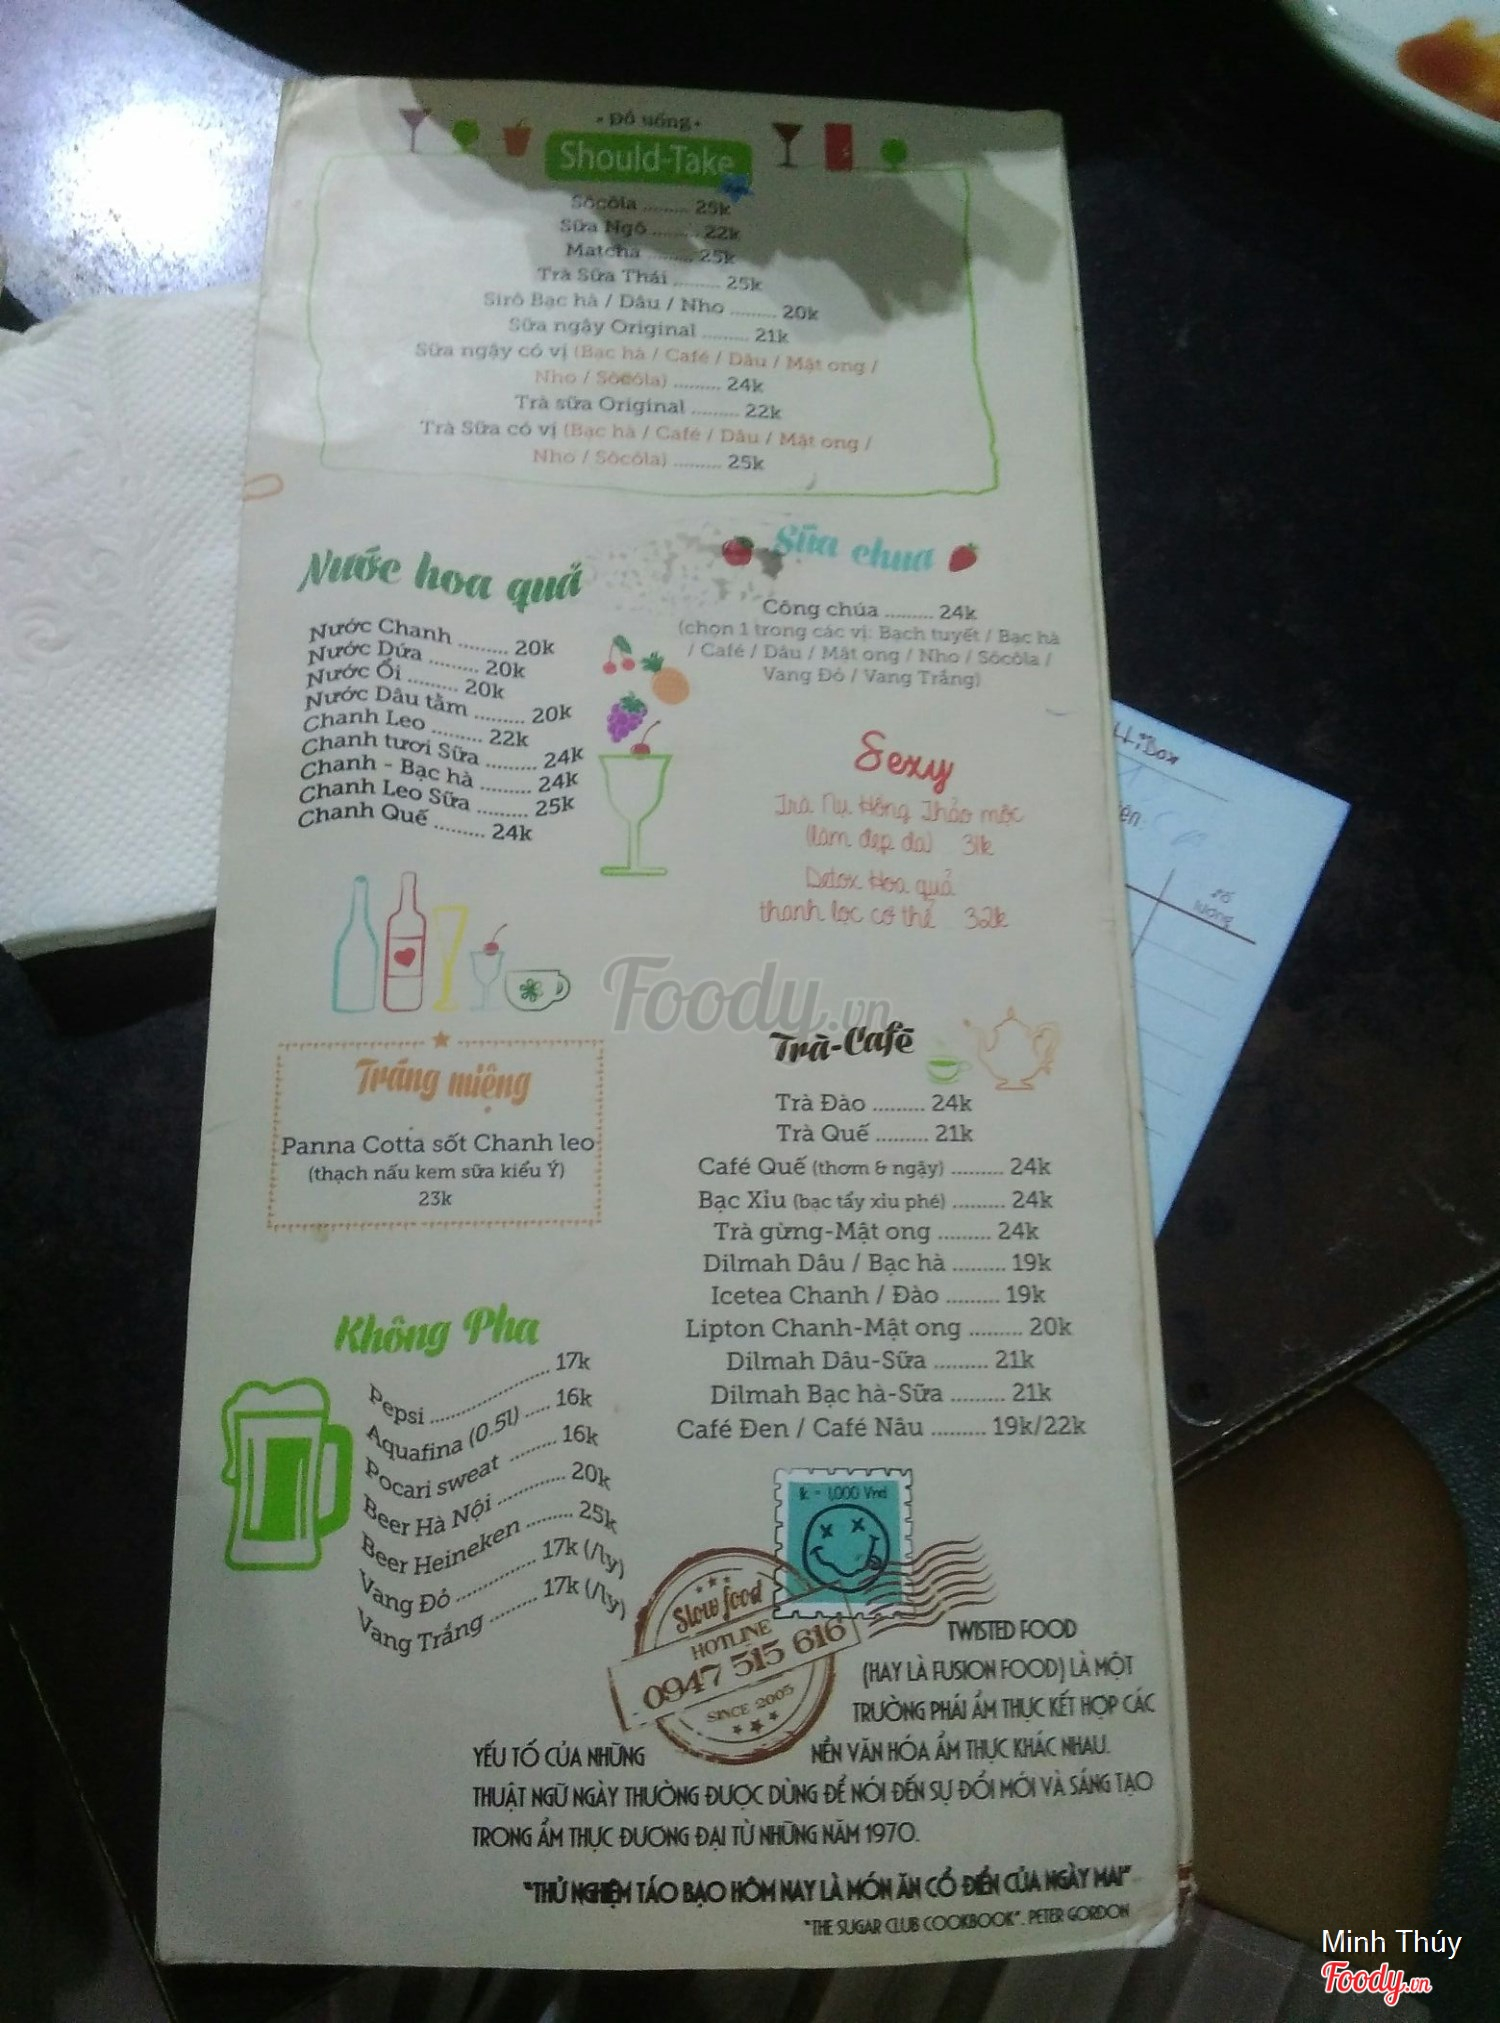 • Đồ uống •
Should-Take
Sôcôla ......... 25k
Sữa Ngô ......... 22k
Matcha ......... 25k
Trà Sữa Thái ......... 25k
Sirô Bạc hà / Dâu / Nho ......... 20k
Sữa ngậy Original ......... 21k
Sữa ngậy có vị (Bạc hà / Café / Dâu / Mật ong /
Nho / Sôcôla) ......... 24k
Trà sữa Original ......... 22k
Trà Sữa có vị (Bạc hà / Café / Dâu / Mật ong /
Nho / Sôcôla) ......... 25k
Nước hoa quả
Nước Chanh ......... 20k
Nước Dứa ......... 20k
Nước Ổi ......... 20k
Nước Dâu tằm ......... 20k
Chanh Leo ......... 22k
Chanh tươi Sữa ......... 24k
Chanh - Bạc hà ......... 24k
Chanh Leo Sữa ......... 25k
Chanh Quế ......... 24k
Sữa chua
Công chúa ......... 24k
(chọn 1 trong các vị: Bạch tuyết / Bạc hà
/ Café / Dâu / Mật ong / Nho / Sôcôla /
Vang Đỏ / Vang Trắng)
Sexy
Trà Nụ Hồng Thảo mộc
(làm đẹp da) 31k
Detox Hoa quả
thanh lọc cơ thể 32k
Foody.vn
Tráng miệng
Panna Cotta sốt Chanh leo
(thạch nấu kem sữa kiểu Ý)
23k
Trà-Café
Trà Đào ......... 24k
Trà Quế ......... 21k
Café Quế (thơm & ngậy) ......... 24k
Bạc Xỉu (bạc tẩy xỉu phé) ......... 24k
Trà gừng-Mật ong ......... 24k
Dilmah Dâu / Bạc hà ......... 19k
Icetea Chanh / Đào ......... 19k
Lipton Chanh-Mật ong ......... 20k
Dilmah Dâu-Sữa ......... 21k
Dilmah Bạc hà-Sữa ......... 21k
Café Đen / Café Nâu ......... 19k/22k
Không Pha
Pepsi ......... 17k
Aquafina (0.5l) ..... 16k
Pocari sweat ........ 16k
Beer Hà Nội ......... 20k
Beer Heineken ......... 25k
Vang Đỏ ......... 17k (/ly)
Vang Trắng ......... 17k (/ly)
k - 1,000 Vnd
Slow food
HOTLINE
0947 515 616
SINCE 2005
TWISTED FOOD
(HAY LÀ FUSION FOOD) LÀ MỘT
TRƯỜNG PHÁI ẨM THỰC KẾT HỢP CÁC
YẾU TỐ CỦA NHỮNG NỀN VĂN HÓA ẨM THỰC KHÁC NHAU.
THUẬT NGỮ NGÀY THƯỜNG ĐƯỢC DÙNG ĐỂ NÓI ĐẾN SỰ ĐỔI MỚI VÀ SÁNG TẠO
TRONG ẨM THỰC ĐƯƠNG ĐẠI TỪ NHỮNG NĂM 1970.
"THỬ NGHIỆM TÁO BẠO HÔM NAY LÀ MÓN ĂN CỔ ĐIỂN CỦA NGÀY MAI"
"THE SUGAR CLUB COOKBOOK". PETER GORDON
số
lượng
Minh Thúy
Foody.vn